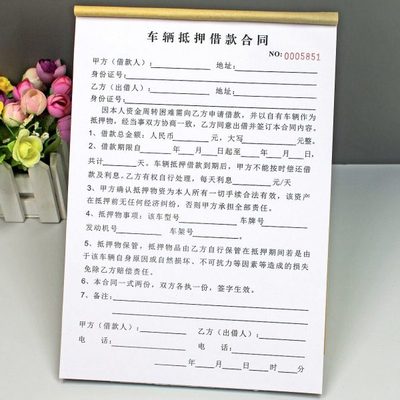 车辆抵押借款合同
NO: 0005851
甲方（借款人）：________ 地址：________
身份证号：________
乙方（出借人）：________ 地址：________
身份证号：________
因本人资金周转困难需向乙方申请借款，并以自有车辆作为
抵押物，经当事双方协商一致，乙方同意出借并签订本合同内容，
1、借款总金额：人民币________元，大写________元整，
2、借款期限自______年____月____日起至____年____月____日，
共计____天。车辆抵押借款到期后，甲方不能按时偿还借
款及利息，乙方有权自行处理，每天利息________元/天
3、甲方确认抵押物资为本人所有一切手续合法有效，该资产
在抵押前无任何经济纠纷，否则甲方承担全部责任。
4、抵押物事项：该车型号________ 车牌号________
发动机号________ 车架号________。
5、抵押物保管，抵押物品由乙方自行保管在抵押期间若是由
于该车辆自身原因或自然损坏、不可抗力等因素等造成的损失
免除乙方赔偿责任。
6、本合同一式两份，双方各执一份，签字生效。
7、备注：________
甲方（借款人）：________ 乙方（出借人）：________
电　话：________ 电　话：________
______年____月____日____时____分